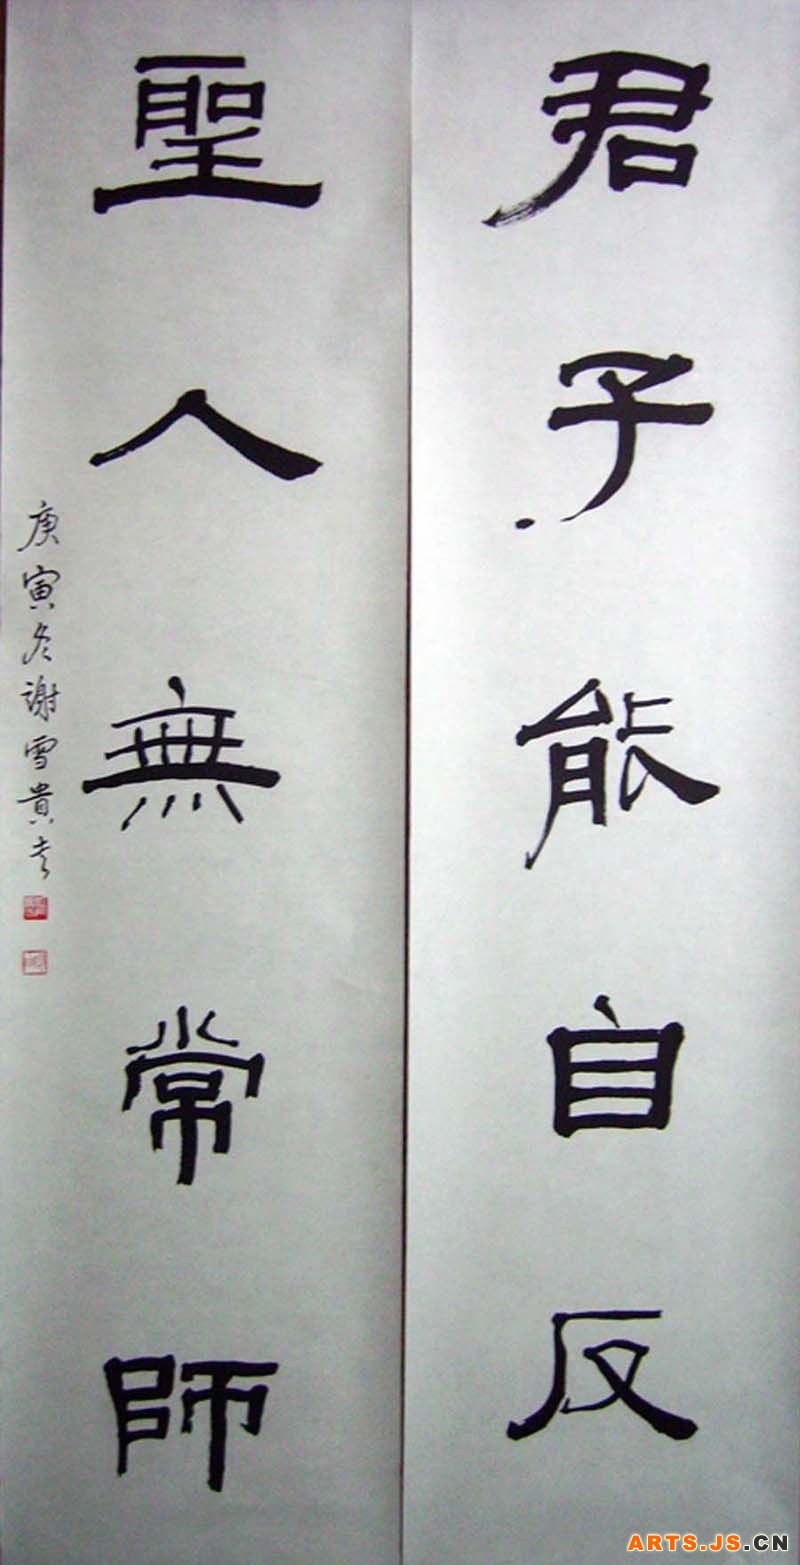 君子能自反
聖人無常師
庚寅冬谢雪貴书
ARTS.JS.CN